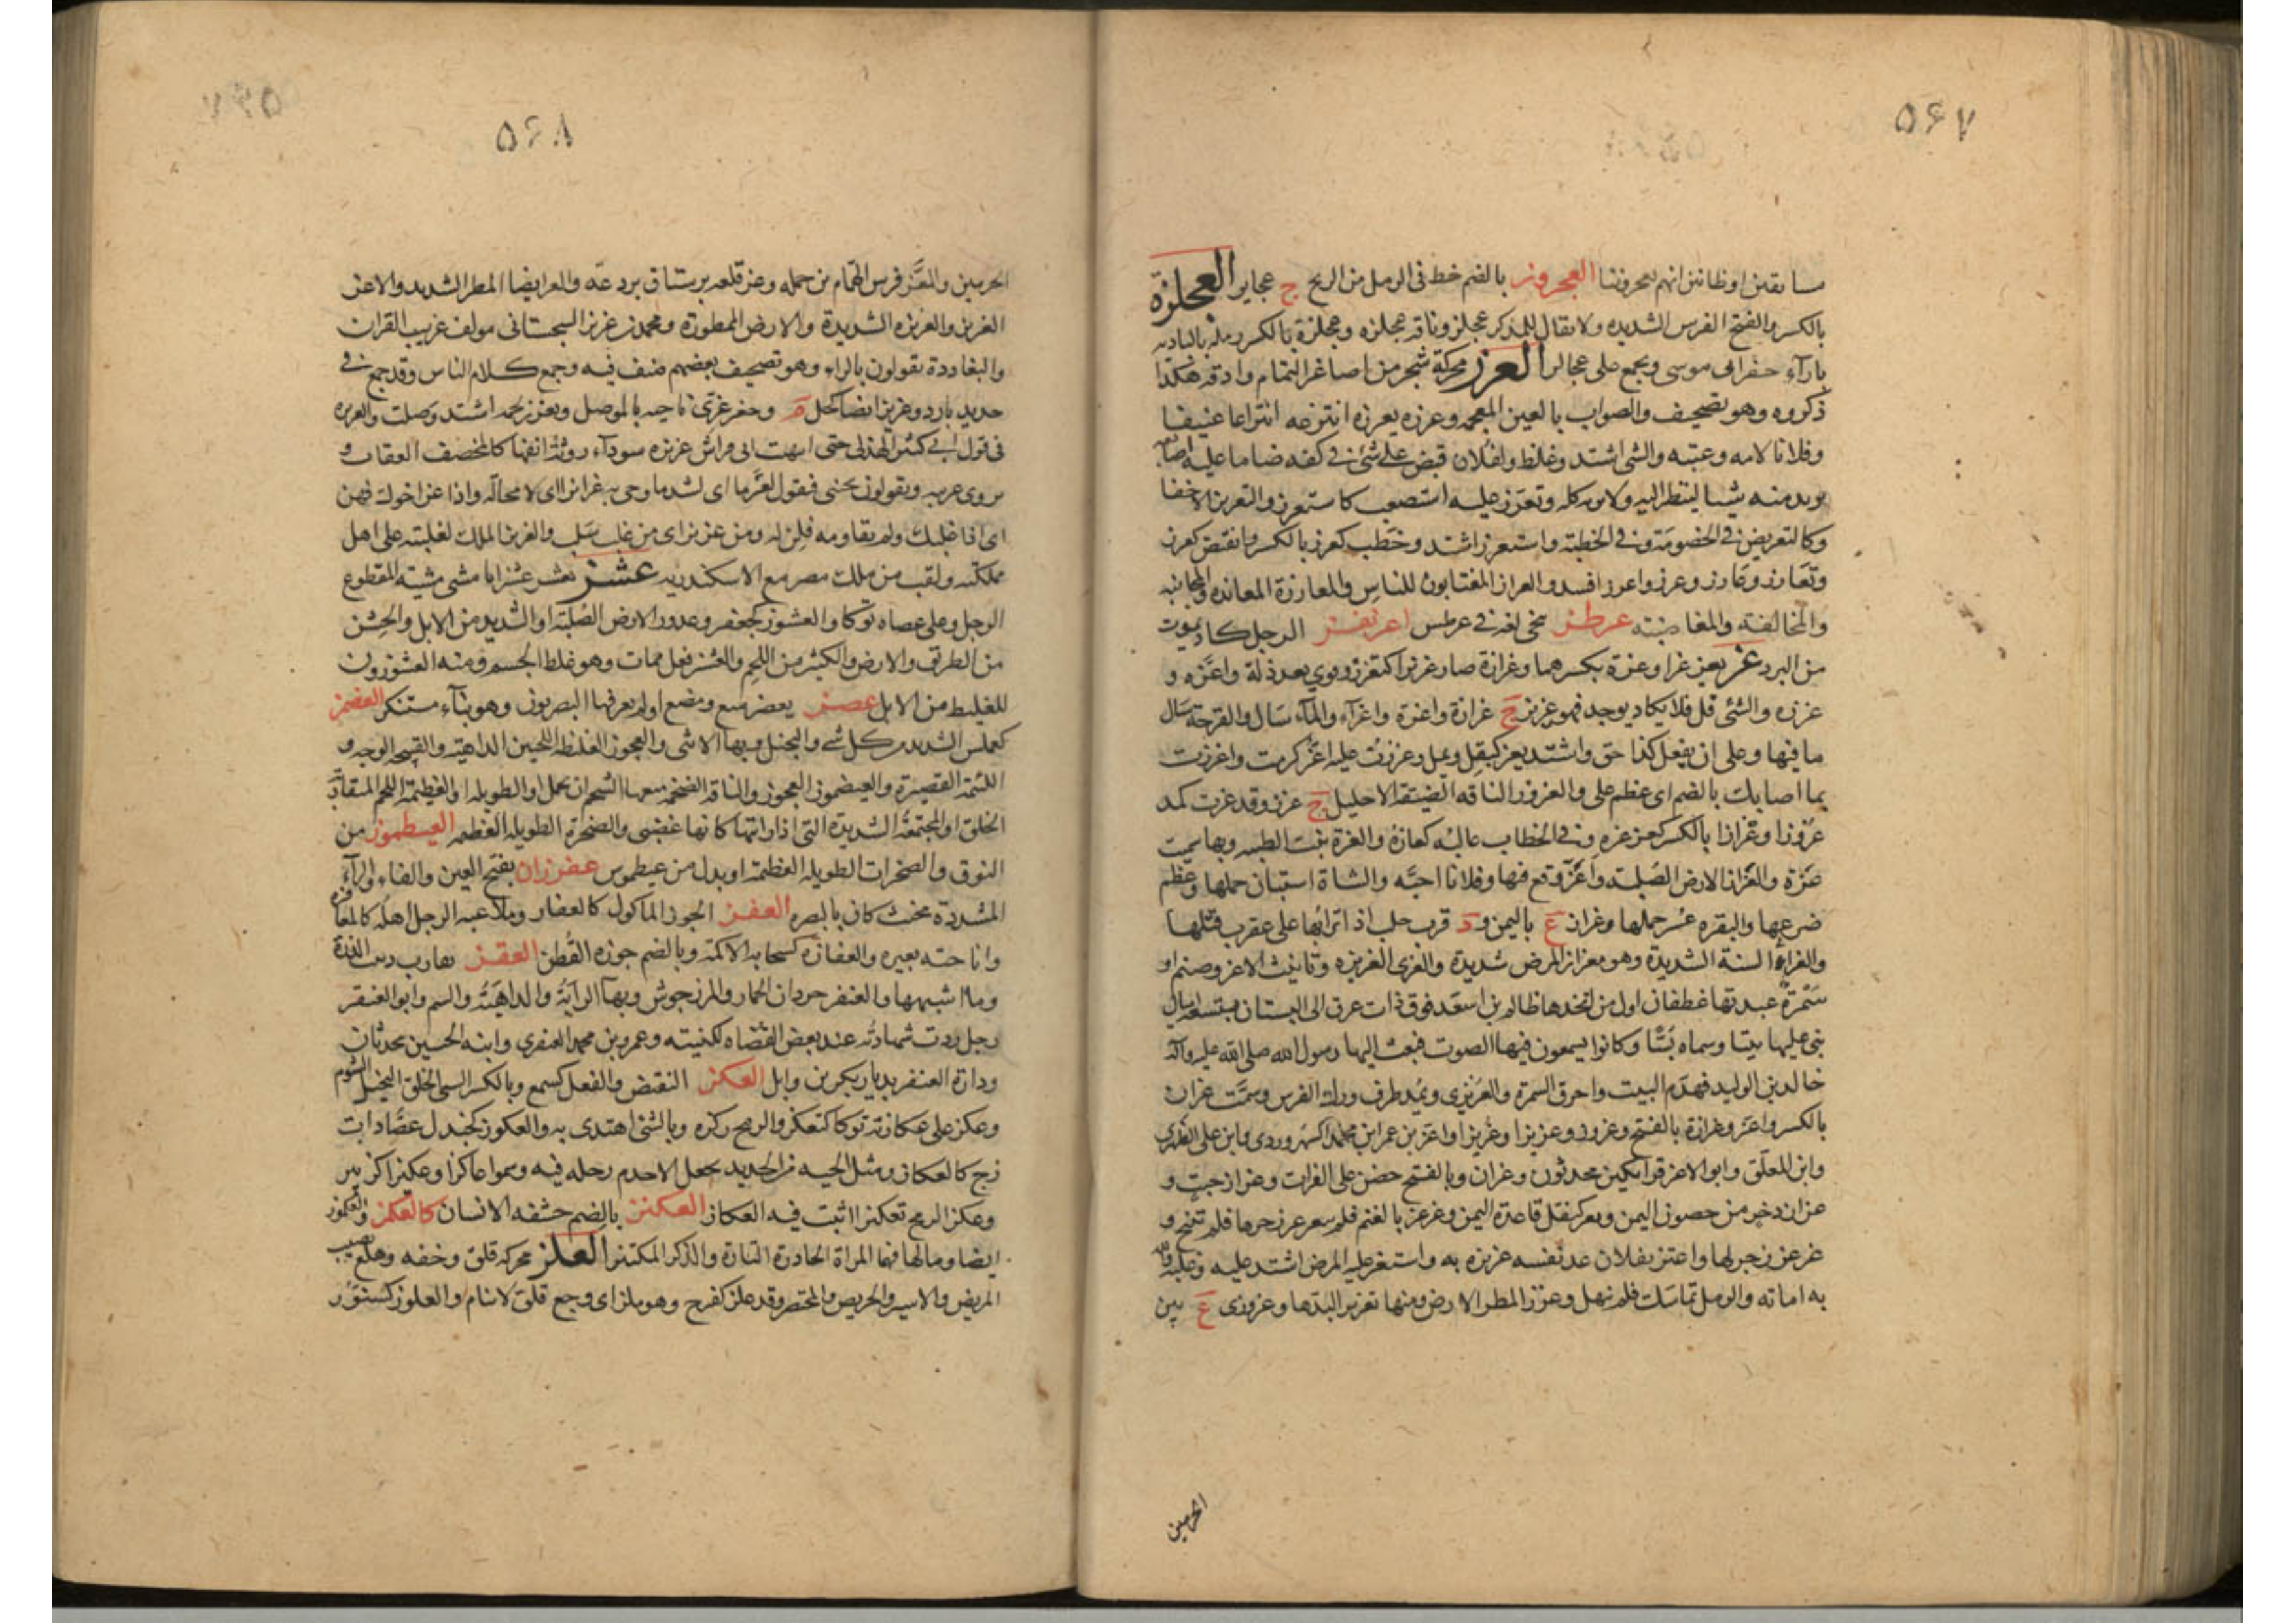 ۵۶۷
سابقين او ظانين انهم يعجزوننا العجروز بالضم خط فى الرمل من الريح ج عجايز العجلزة
بالكسر والفتح الفرس الشديده ولا يقال للمذكر عجلز وناقه عجلزه وعجلزة بالكسر رمله بالباديه
بازاء حفر ابى موسى ويجمع على عجالز العرز محركة شجر من اصاغر الثمام وادقه هكذا
ذكروه وهو تصحيف والصواب بالعين المعجمه وعرزه يعرزه انتزعه انتزاعا عنيفا
وفلانا لامه وعتبه والشى اشتد وغلظ ولفلان قبض على شئ فى كفه ضاما عليه اصابعه
يريد منه شيئا لينظر اليه ولا يريه كله وتعرز عليه استصعب كاستعرز والتعريز الاخفا
وكالتعريض فى الخصومة وفى الخطبة واستعرز اشتد وخطب كعرز بالكسر وانقبض كعرز
وتعارز وعارز وعرز واعرز افسد والعراز المغتابون للناس والمعارزة المعانده والمجانبه
والمخالفة والمغاضبة عرطز تنحى لغة فى عرطس اعرنفز الرجل كاد يموت
من البرد عز يعز عزا وعزة بكسرهما وعزازة صار عزيزا كتعزز وقوى بعد ذلة واعزه و
عززه والشئ قل فلا يكاد يوجد فهو عزيز ج عزازة واعزة واعزاء والماء سال والقرحة سال
ما فيها وعلى ان يفعل كذا حق واشتد يعز كيقل ويمل وعززت عليه اعز كرمت واعززت
بما اصابك بالضم اى عظم على والعزوز الناقه الضيقة الاحليل ج عزز وقد عزت كمد
عزوزا وعزازا بالكسر كعزز وعزه وفى الخطاب غالبه كعازه والعزة بنت الظبيه وبها سميت
عزة والعزاز الارض الصلبة واعز وقع فيها وفلانا احبه والشاة استبان حملها وعظم
ضرعها والبقره عسر حملها وعزاز ع باليمن و د قرب حلب اذا ترابها على عقرب قتلها
والعزاء السنة الشديدة وهو معزاز المرض شديدة والعزى العزيزه وتانيث الاعز وصنم او
سمرة عبدتها غطفان اول من اتخذها ظالم بن اسعد فوق ذات عرق الى البستان بتسعة اميال
بنى عليها بيتا وسماه بسا وكانوا يسمعون فيها الصوت فبعث اليها رسول الله صلى الله عليه وآله
خالد بن الوليد فهدم البيت واحرق السمرة والعزيزى ويمد طرف ورك الفرس وسمت عزان
بالكسر واعز وعزازة بالفتح وعزوز وعزيزا وعزيزا واعز بن عمر ابن محمد السهروردى وابن على الظهرى
وابن العلق وابو الاعز قراتكين محدثون وعزان وبالفتح حصن على الفرات وعزان خبت و
عزان ذخر من حصون اليمن وتعز كتقل قاعدة اليمن وعزعز بالغنم فلم تتعزعز زجرها فلم تنح و
عزعز زجر لها واعتز بفلان عد نفسه عزيزه به واستعز عليه المرض اشتد عليه وغلبه والله
به اماته والرمل تماسك فلم ينهل وعزز المطر الارض ومنها تعزيز البدها وعزوزى ع بين
الحرمين
۵۶۸
الحرمين والمعز فرس الهمام من حمله وعز قلعه برستاق بردعه والعز ايضا المطر الشديد والاعز
العزيز والعزيزه الشديدة والارض الممطورة ومحمد بن عزيز السجستانى مولف غريب القران
والبغاددة تقولون بالراء وهو تصحيف بعضهم صنف فيه وجمع كلام الناس وقد جمع فى
حديد بارد وعزيز ايضا كحل م وحفر عزى ناحيه بالموصل وتعزز لحمه اشتد وصلت والعزيزه
فى قول ابى كبير الهذلى حتى انتهيت الى فراش عزيزه سوداء روثة انفها كالمخصف العقاب و
يروى عربيه وتقولون تحبنى فيقول لعز ما اى لشد ما وجى به عزا بزا اى لا محالة واذا عز اخوك فهن
اى اذا غلبك ولم تقاومه فلن له ومن عز بز اى من غلب سلب والعزيز الملك لغلبته على اهل
مملكته ولقب من ملك مصر مع الاسكندريه عشز يعشز عشزانا مشى مشية المقطوع
الرجل وعلى عصاه توكا والعشوز كجعفر وعدور الارض الصلبة او الشديد من الابل والخشن
من الطريق والارض والكثير من اللحم والعشز فعل ممات وهو غلظ الجسم ومنه العشوزون
للغليظ من الابل عصز يعضز منع ومضغ او لم يعرفها البصريون وهو بناء مستنكر العضمز
كعملس الشديد من كل شئ والبخيل وبها الانثى والعجوز الغليظه اللحيين الداهية والقبيحه الوجه و
اللئيمة القصيرة والعيضموز العجوز والناقه الضخمه منعها الشحم ان تحمل او الطويله او العظيمة اللحم المتقارب
الخلق او المجتمعه الشديدة التى اذا رايتها كانها غضبى والصخرة الطويله العظيمه العيطموز من
النوق والصخرات الطويله العظيمة او بدل من عيطموس عفرزان بفتح العين والفاء والراء
المشددة مخنث كان بالبصره العفز الجوز الماكول كالعفاز وملاعبه الرجل اهله كالمعافزه
واناخته بعيره والعفازه كسحابه الاكمة وبالضم جوزه القطن العقز تقارب دبيب الذرة
وما اشبهها والعنقز جردان الحمار والمرزجوش وبهاء الراية والداهية والسم وابو العنقز
رجل ردت شهادته عند بعض القضاه لكنيته وعمرو بن محمد العنقزى وابنه الحسين محدثان
ودارة العنقز بديار بكر بن وابل العكز التقبض والفعل كسمع وبالكسر السئ الخلق البخيل المشوم
وعكز على عكازته توكا كتعكز والرمح ركزه وبالشئ اهتدى به والعكوز كجندل عصا ذات
زج كالعكاز ومثل الجبه من الحديد يجعل الاجدم رحله فيه وسموا عاكزا وعكيزا كزبير
وعكز الرمح تعكيزا اثبت فيه العكاز العكنز بالضم حشفه الانسان كالعكمز والعكموز
ايضا ومالها فيهما المراة الحادرة التارة والذكر المكتنز العلز محركه قلق وخفه وهلع يصيب
المريض والاسير والحريص والمحتضر وقد علز كفرح وهو علز اى وجع قلق لا ينام والعلوز كسنور